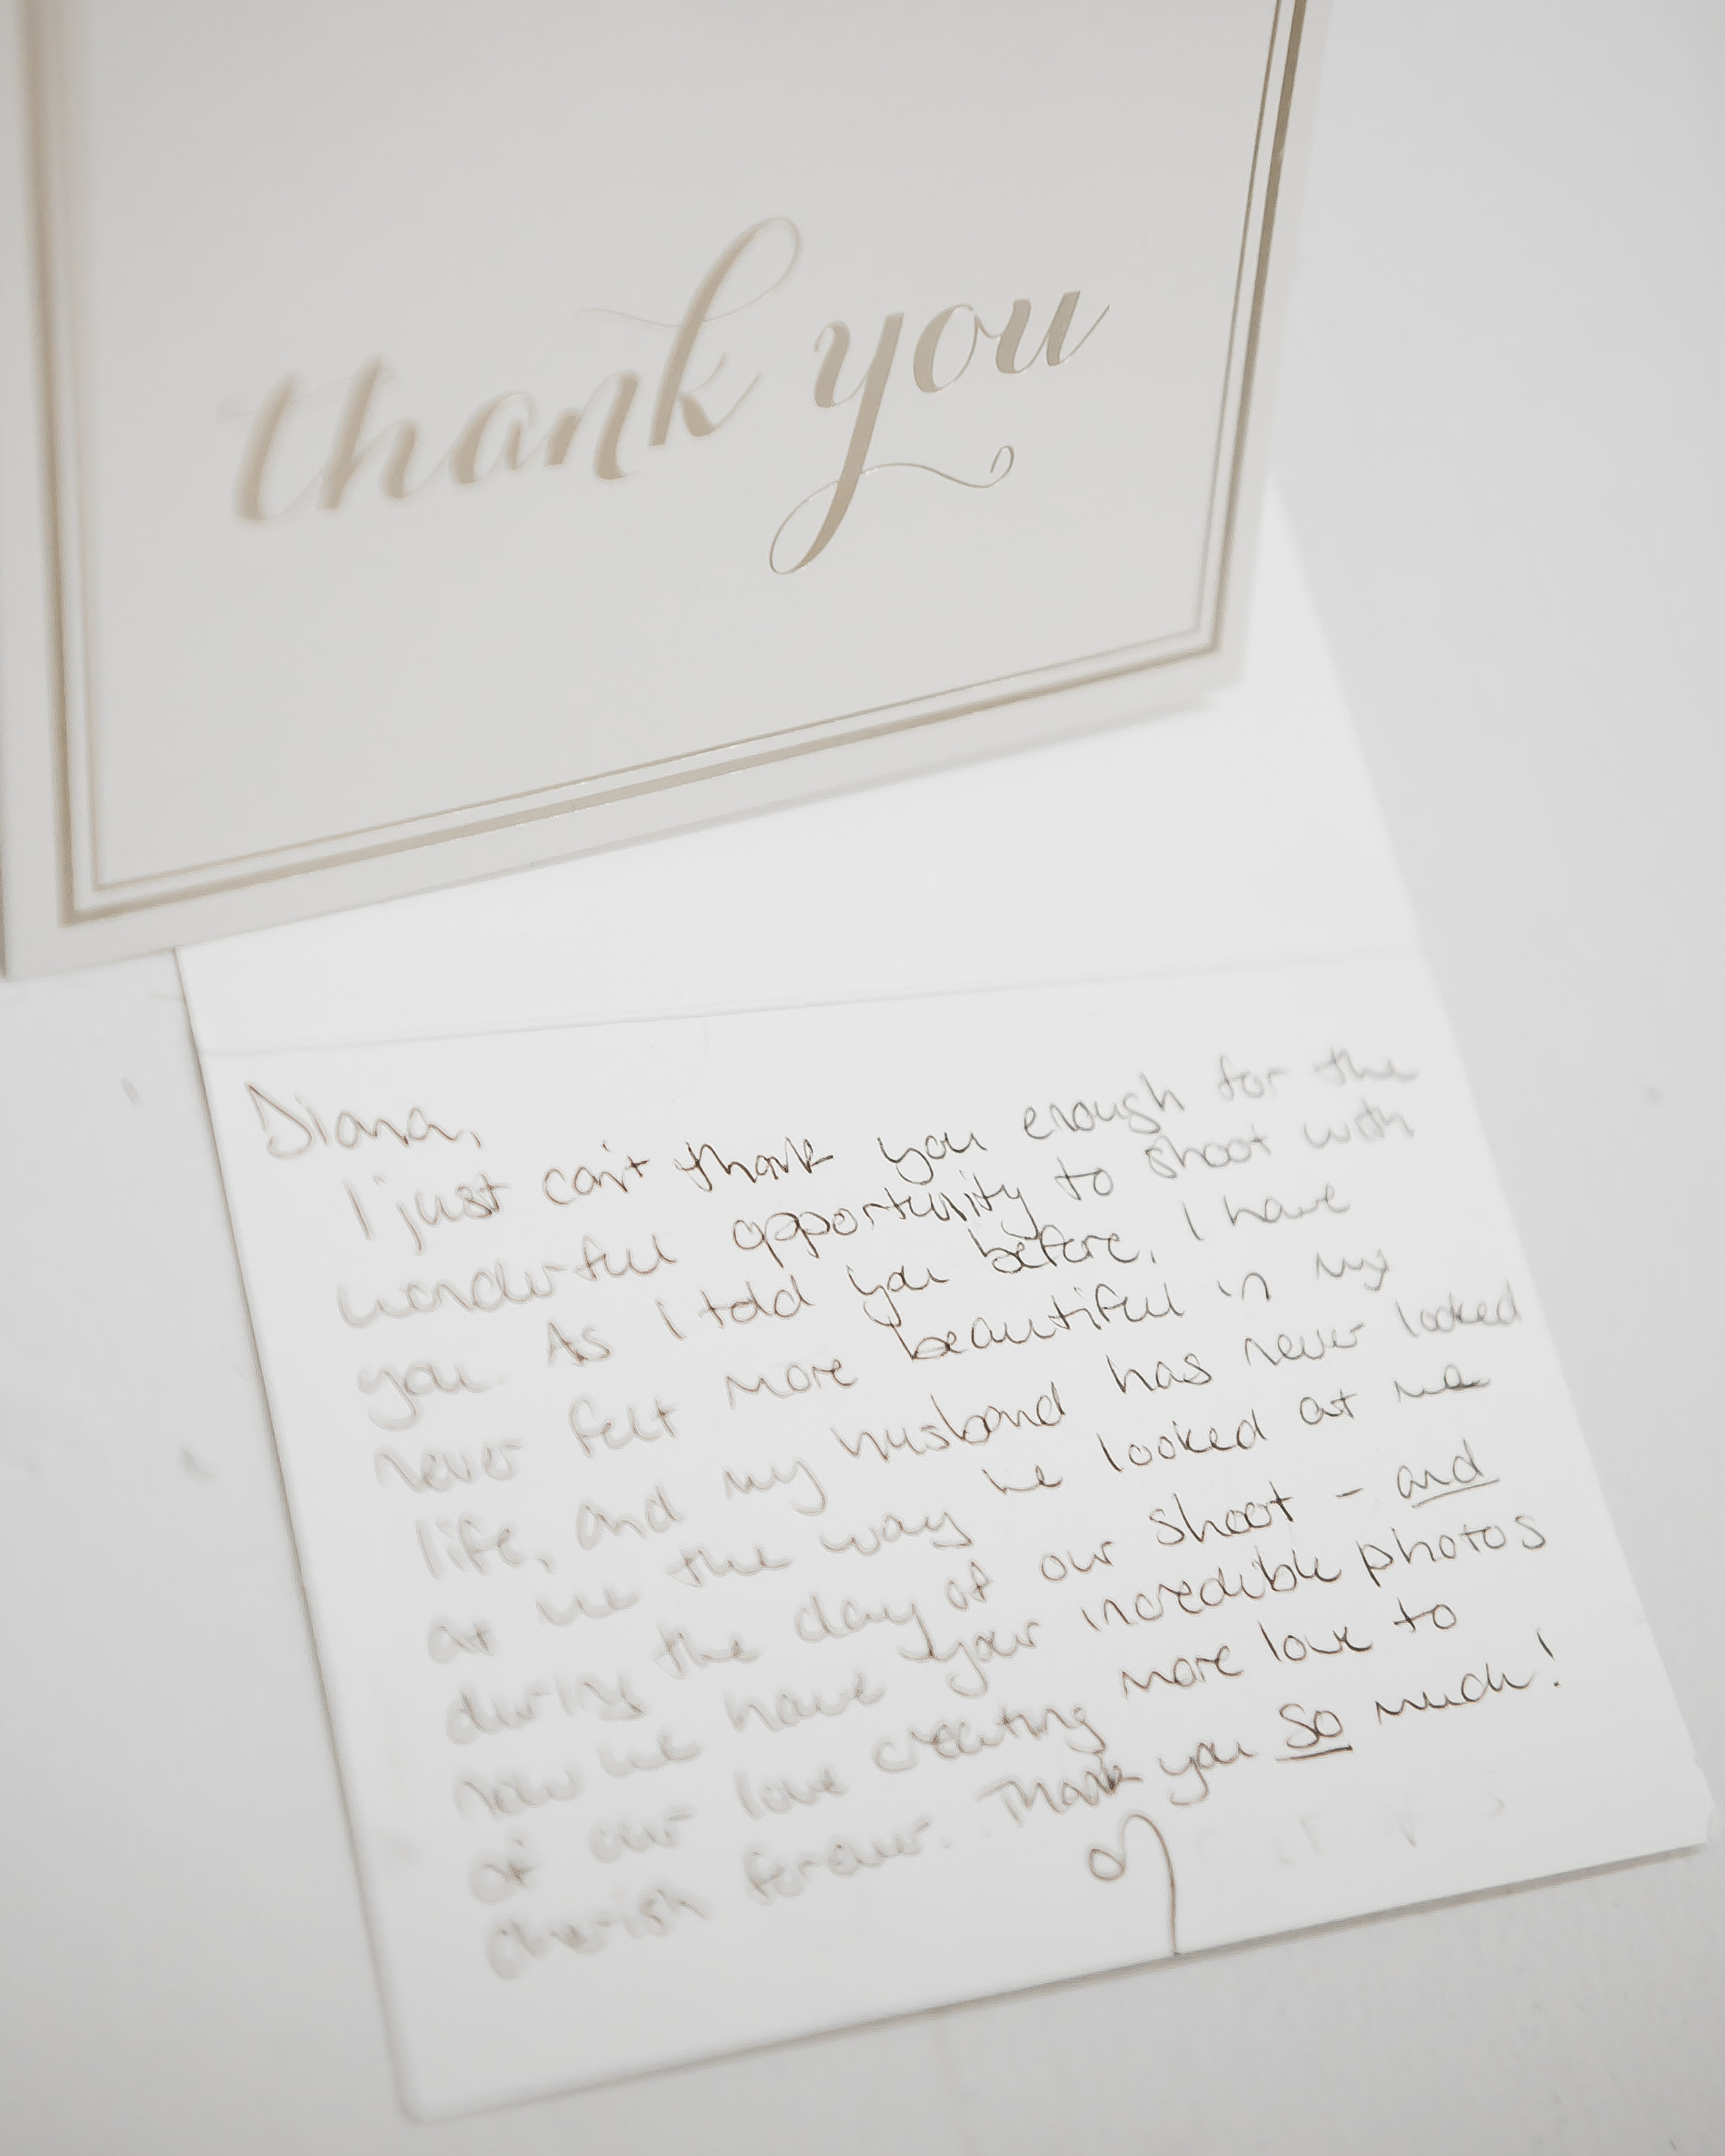 thank you
Diana,
I just can't thank you enough for the
wonderful opportunity to shoot with
you. As I told you before, I have
never felt more beautiful in my
life, and my husband has never looked
at me the way he looked at me
during the day of our shoot - and
now we have your incredible photos
of our love creating more love to
cherish forever. Thank you so much!